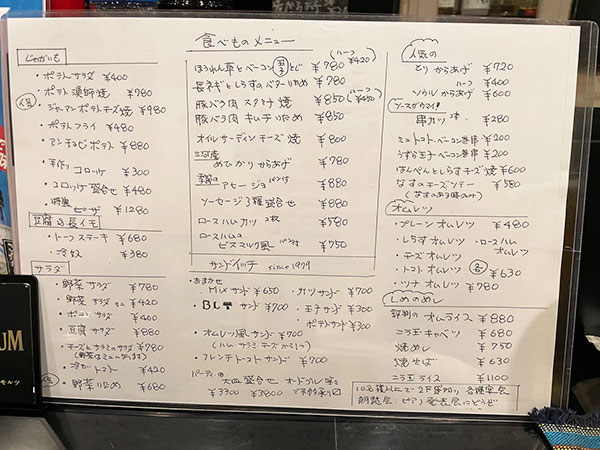 食べもの メニュー
じゃがいも
・ポテトサラダ ¥400
・ポテト漁師焼 ¥780
人気
・ジャーマンポテトチーズ焼 ¥980
・ポテトフライ ¥480
・アンチョビポテト ¥880
・手作り コロッケ ¥300
・コロッケ 盛合せ ¥480
・特製 ピザ ¥1280
豆腐 & 長イモ
・トーフステーキ ¥680
・冷奴 ¥380
サラダ
・野菜サラダ ¥780
・野菜サラダ ミニ ¥420
・ポテトサラダ ¥400
・豆腐サラダ ¥880
・チーズとサラミのサラダ ¥780
・冷たいトマト ¥420
・野菜いため ¥680
ほうれん草とベーコン 玉子とじ ¥780 (ハーフ ¥420)
長ネギとしらすのバターいため ¥780
豚バラ肉 スタミナ焼 ¥850 (ハーフ ¥450)
豚バラ肉 キムチいため ¥850
オイルサーディンチーズ焼 ¥800
三河産 めひかりからあげ ¥780
季節のアヒージョ パン付 ¥880
ソーセージ3種盛合せ ¥880
ロースハムカツ 2枚 ¥580
ロースハムの
ビスマルク風 パン付 ¥750
サンドイッチ since 1979
・おまかせ
Mixサンド ¥650 ・カツサンド ¥700
・BLTサンド ¥700 ・玉子サンド ¥300
・ポテトサンド ¥300
・オムレツ風サンド ¥700
(ハム・サラミ・チーズから1つ)
・フレンチトーストサンド ¥700
パーティー用
大皿盛合せ・オードブル
¥3300 ¥3800
人気の
とりからあげ ¥720
ハーフ ¥400
ソウルからあげ ¥600
ソースがウマイ!
串カツ 2本 ¥280
ミニトマトベーコン巻串 ¥200
うずら玉子ベーコン巻串 ¥200
はんぺんとしらすチーズ焼 ¥600
なすのチーズソテー ¥580
(なすのある時のみ)
オムレツ
・プレーンオムレツ ¥480
・しらすオムレツ ・ロースハムオムレツ
・チーズオムレツ
・トマトオムレツ 各 ¥630
・ツナオムレツ
しめのめし
評判のオムライス ¥880
ニラ玉キャベツ ¥680
焼めし ¥750
焼そば ¥630
ニラ玉ライス ¥1100
10名様以上で2F貸切り 各種宴会
朗読会・ピアノ発表会にどうぞ
UM